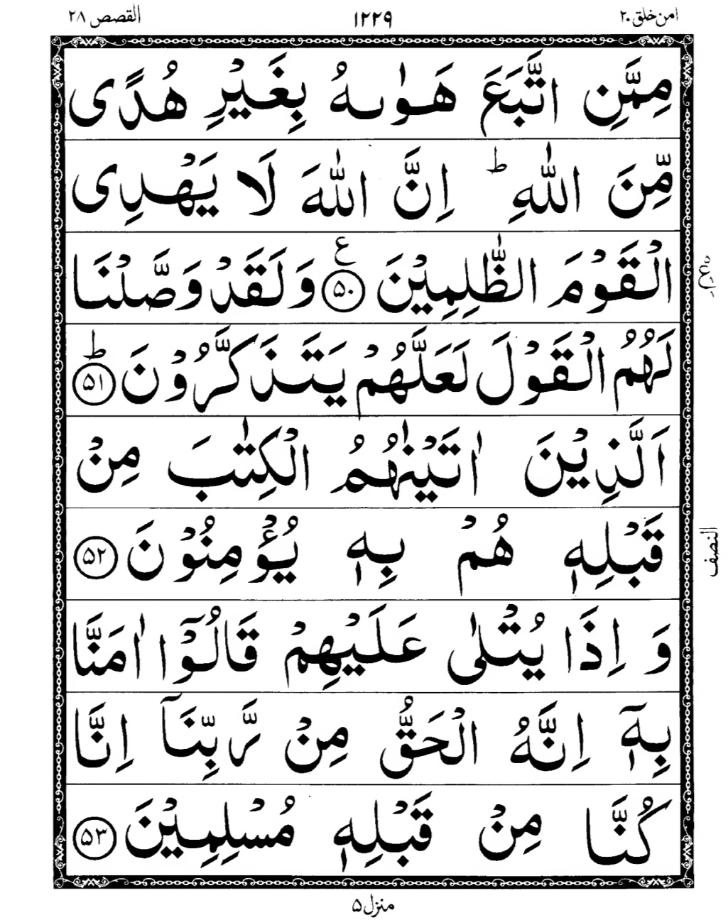 امن خلق ۲۰ ۱۲۲۹ القصص ۲۸
مِمَّنِ اتَّبَعَ هَوٰىهُ بِغَيْرِ هُدًى
مِّنَ اللّٰهِ ؕ اِنَّ اللّٰهَ لَا يَهْدِى
الْقَوْمَ الظّٰلِمِيْنَ ۵۰ ع وَلَقَدْ وَصَّلْنَا
لَهُمُ الْقَوْلَ لَعَلَّهُمْ يَتَذَكَّرُوْنَ ۵۱ ؕ
اَلَّذِيْنَ اٰتَيْنٰهُمُ الْكِتٰبَ مِنْ
قَبْلِهٖ هُمْ بِهٖ يُؤْمِنُوْنَ ۵۲
النصف
وَ اِذَا يُتْلٰى عَلَيْهِمْ قَالُوْۤا اٰمَنَّا
بِهٖۤ اِنَّهُ الْحَقُّ مِنْ رَّبِّنَاۤ اِنَّا
كُنَّا مِنْ قَبْلِهٖ مُسْلِمِيْنَ ۵۳
منزل ۵